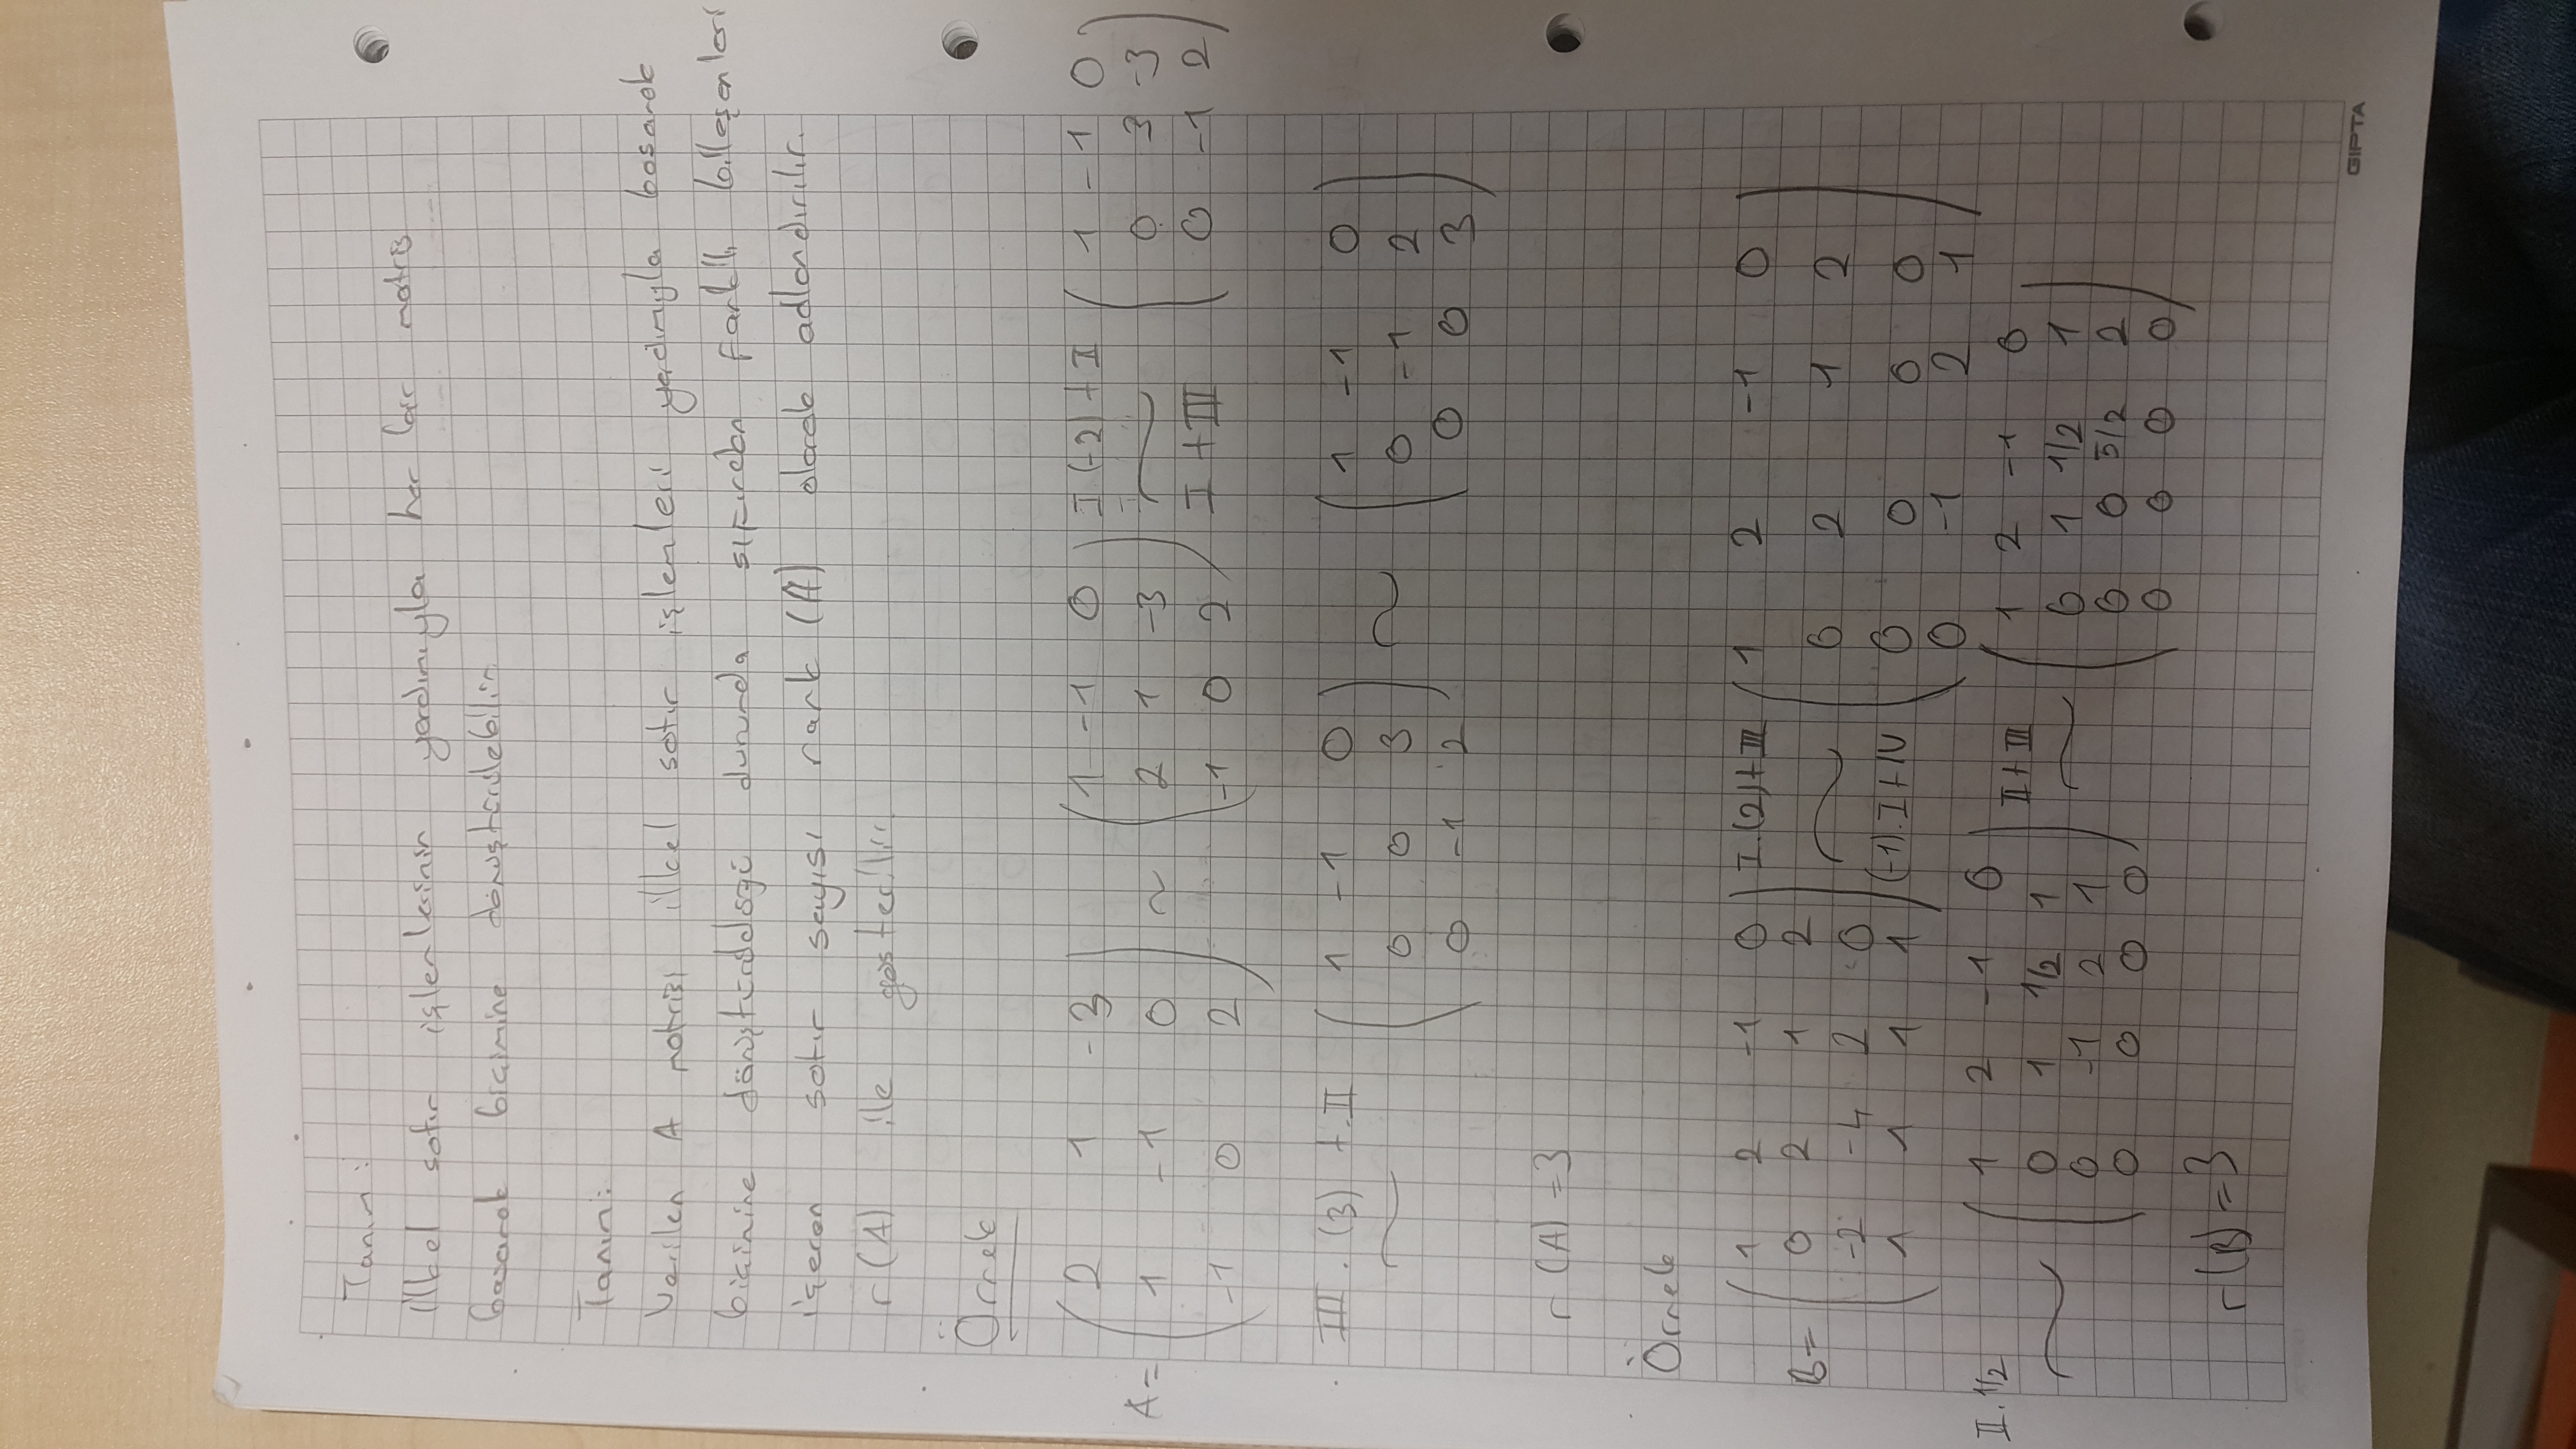 Tanım:
İlkel satır işlemlerinin yardımıyla her bir matris
basamak biçimine dönüştürülebilir.
Tanım:
Verilen A matrisi ilkel satır işlemleri yardımıyla basamak
biçimine dönüştürüldüğü durumda sıfırdan farklı bileşenleri
içeren satır sayısı rank (A) olarak adlandırılır.
r(A) ile gösterilir.
Örnek
A= ( 2 1 -3 ) ~ ( 1 -1 0 ) I(-2)+II ( 1 -1 0 )
( 1 -1 0 ) ( 2 1 -3 ) ~ ( 0 3 -3 )
( -1 0 2 ) ( -1 0 2 ) I+III ( 0 -1 2 )
III.(3)+II ( 1 -1 0 ) ~ ( 1 -1 0 )
~ ( 0 0 3 ) ( 0 -1 2 )
( 0 -1 2 ) ( 0 0 3 )
r(A)=3
Örnek
B= ( 1 2 -1 0 ) I.(2)+III ( 1 2 -1 0 )
( 0 2 1 2 ) ~ ( 0 2 1 2 )
( -2 -4 2 0 ) ( 0 0 0 0 )
( 1 1 1 1 ) (-1).I+IV ( 0 -1 2 1 )
II.1/2 ( 1 2 -1 0 ) II+III ( 1 2 -1 0 )
~ ( 0 1 1/2 1 ) ~ ( 0 1 1/2 1 )
( 0 -1 2 1 ) ( 0 0 5/2 2 )
( 0 0 0 0 ) ( 0 0 0 0 )
r(B)=3
GIPTA